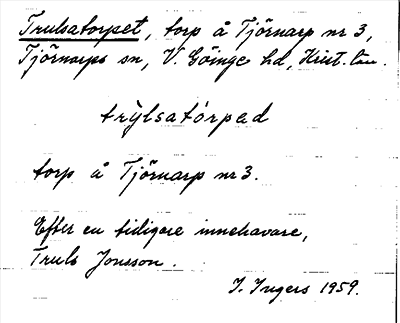 Trulsatorpet, torp å Tjörnarp nr 3,
Tjörnarps sn, V. Göinge hd, Krist. län.
trỳlsatórpad
torp å Tjörnarp nr 3.
Efter en tidigare innehavare,
Truls Jonsson.
I. Ingers 1959.